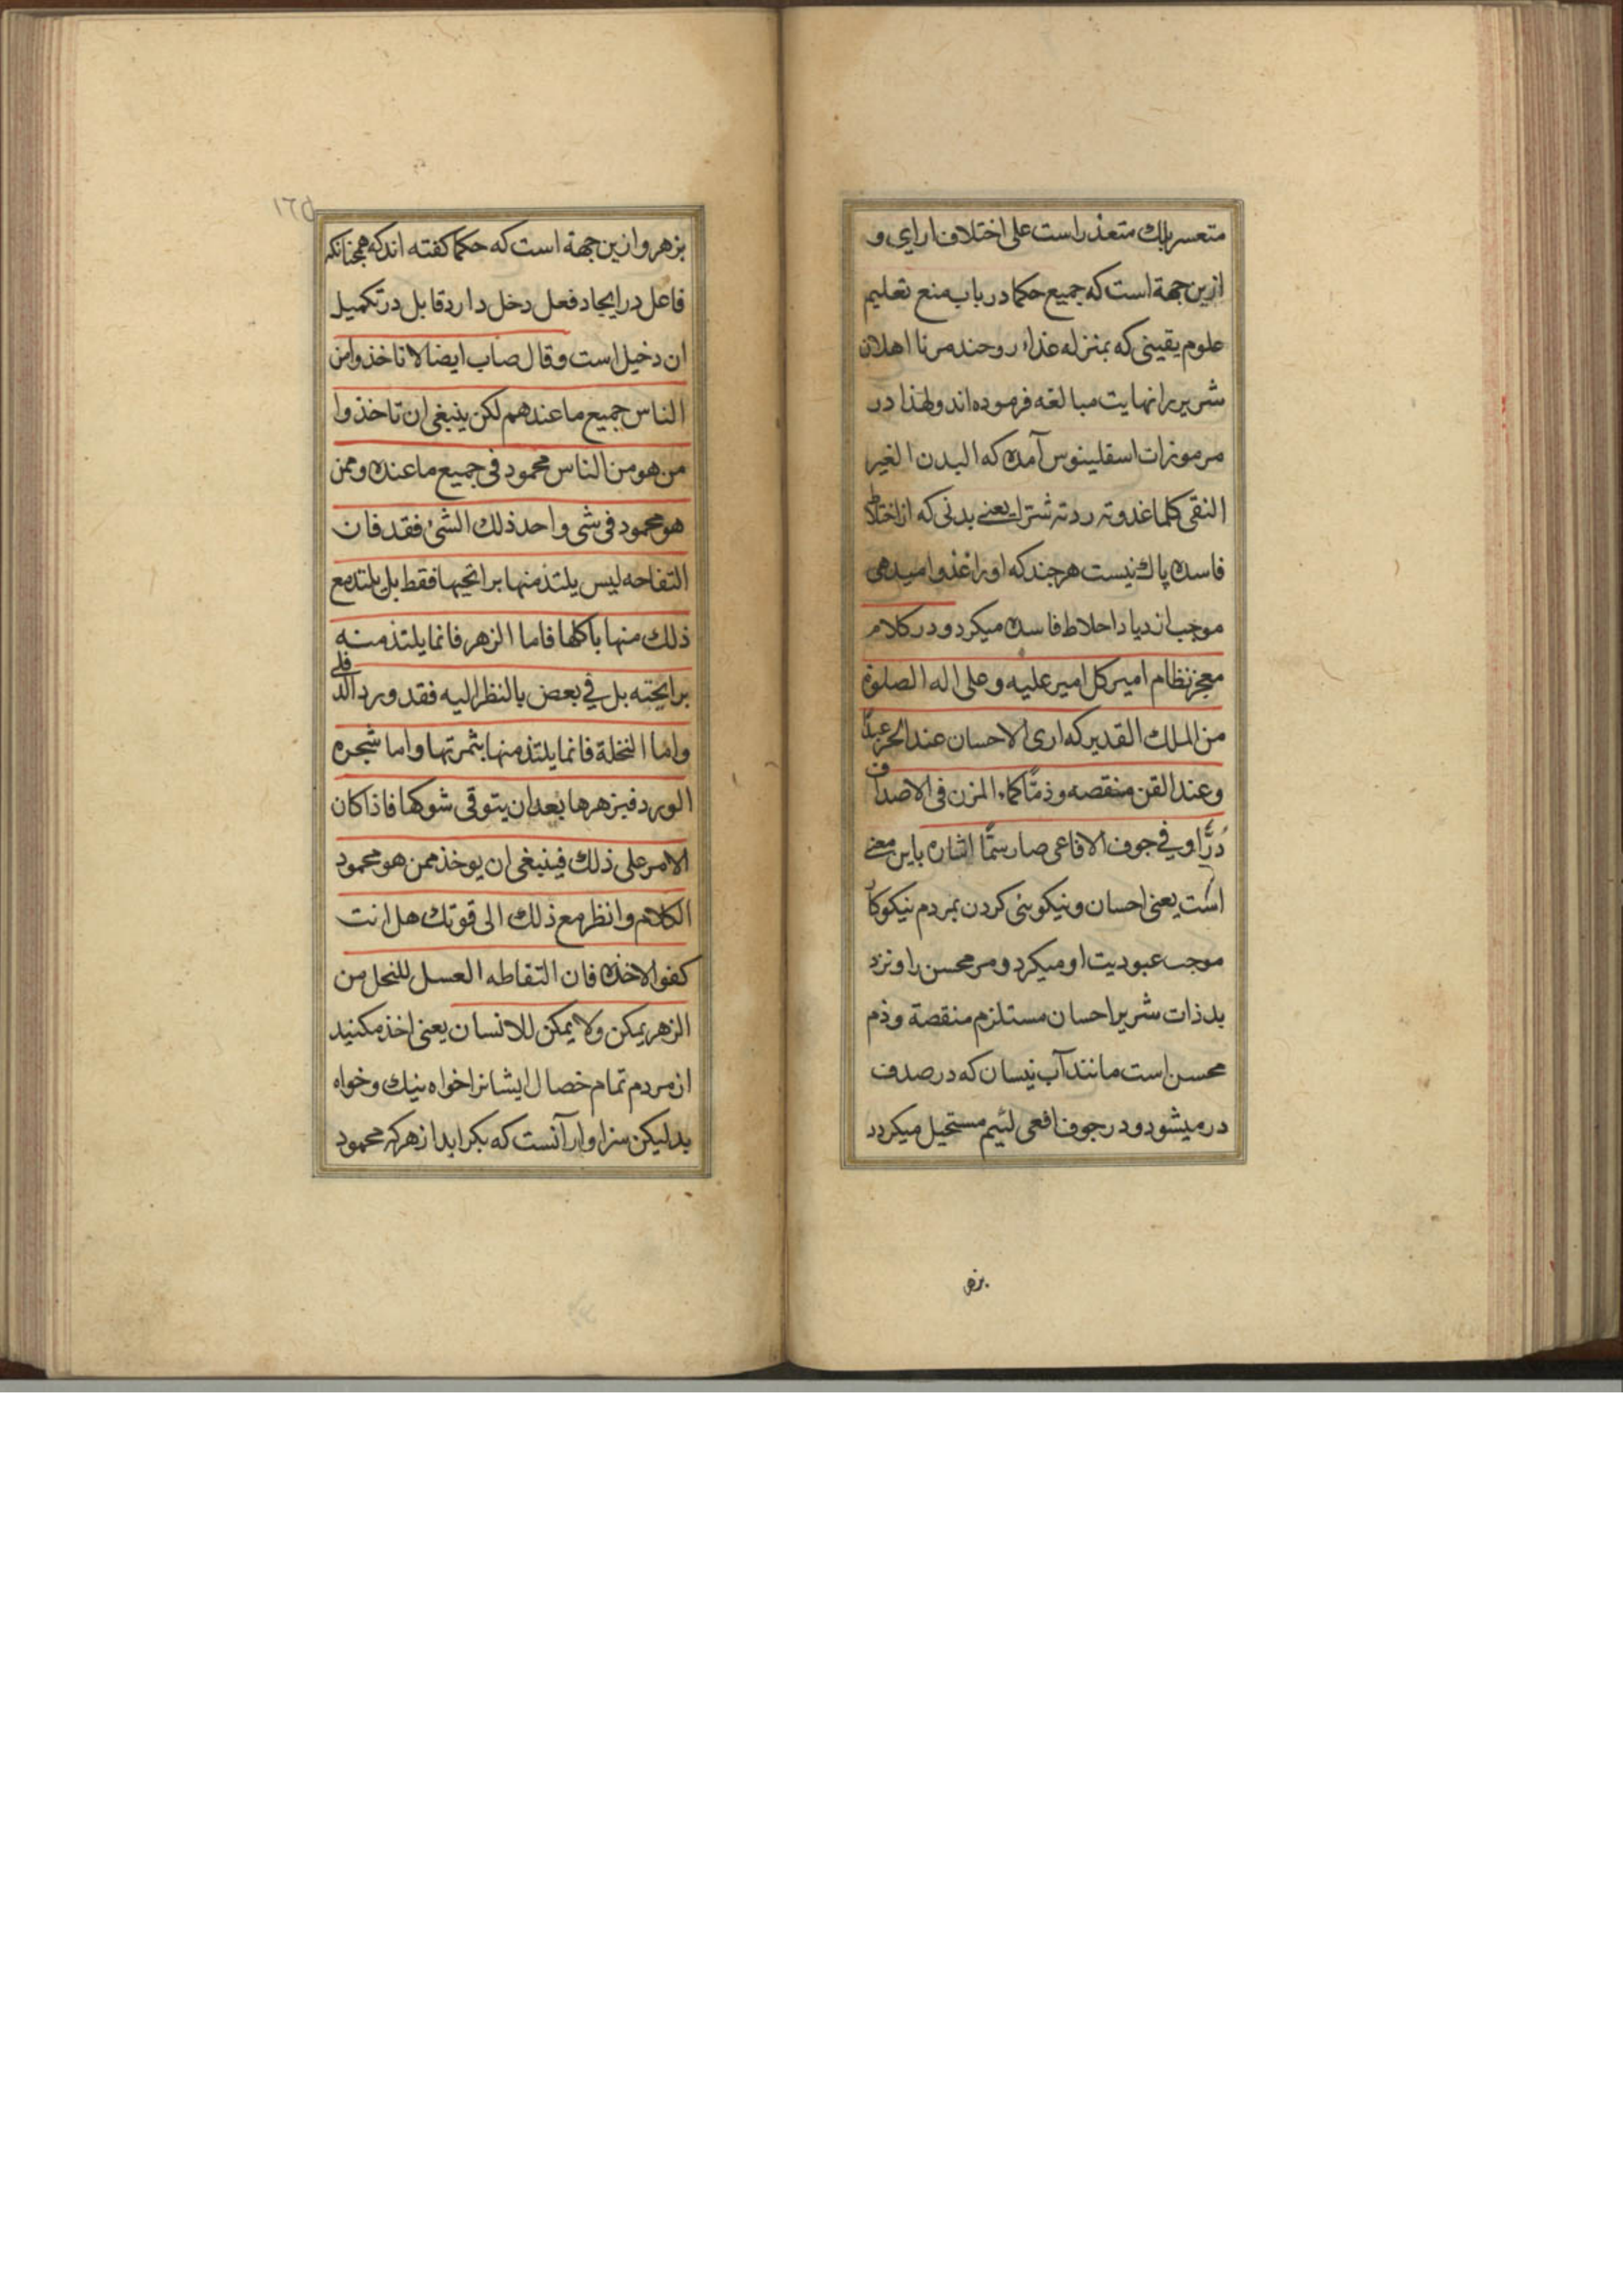 متعسر بلك متعذر است علی اختلاف ارای و
ازین جهة است که جمیع حکما در باب منع تعلیم
علوم یقینی که بمنزله غذاء روحند مر نا اهلان
شریر را نهایت مبالغه فرموده اند و لهذا در
مرموزات اسقلینوس آمده که البدن الغیر
النقی کلما غدوته ردته شترا یعنے بدنی که از اختلاط
فاسده پاك نیست هر جند که او را غذوا میدهی
موجب ازدیاد اخلاط فاسده میکردد و در کلام
معجز نظام امیر کل امیر علیه و علی اله الصلوة
من الملك القدیر که اری الاحسان عند الحر عبدًا
و عند القن منقصه و ذمًا کماء المزن فی الاصداف
دُرًّا و فی جوف الافاعی صار سمًّا اشاره باین معنے
است یعنی احسان و نیکویی کردن بمردم نیکوکار
موجب عبودیت او میکردد مر محسن را و نزد
بد ذات شریر احسان مستلزم منقصة و ذم
محسن است مانند آب نیسان که در صدف
در میشود و در جوف افعی لئیم مستحیل میکردد
بزهر
١٦٥
بزهر و ازین جهة است که حکما کفته اند که همجنانکه
فاعل در ایجاد فعل دخل دارد قابل در تکمیل
ان دخیل است و قال صاب ایضا لا تاخذوا من
الناس جمیع ما عندهم لکن ینبغی ان تاخذوا
من هو من الناس محمود فی جمیع ما عنده و ممن
هو محمود فی شی واحد ذلك الشئ فقد فان
التفاحه لیس یلتذ منها برائحیها فقط بل یلتذ مع
ذلك منها باکلها فاما الزهر فانما یلتذ منه
برایحته بل فی بعض بالنظر الیه فقد ورد الدفلی
و اما النخلة فانما یلتذ منها بثمرتها و اما شجره
الورد فبزهرها بعد ان یتوقی شوکها فاذا کان
الامر علی ذلك فینبغی ان یوخذ ممن هو محمود
الکلام و انظر مع ذلك الی قوتك هل انت
کفو الاخذه فان التقاطه العسل للنحل من
الزهر یمکن و لا یمکن للانسان یعنی اخذ مکنید
از مردم تمام خصال ایشانرا خواه نیك و خواه
بد لیکن سزاوار آنست که بکرابدا ز هرکه محمود